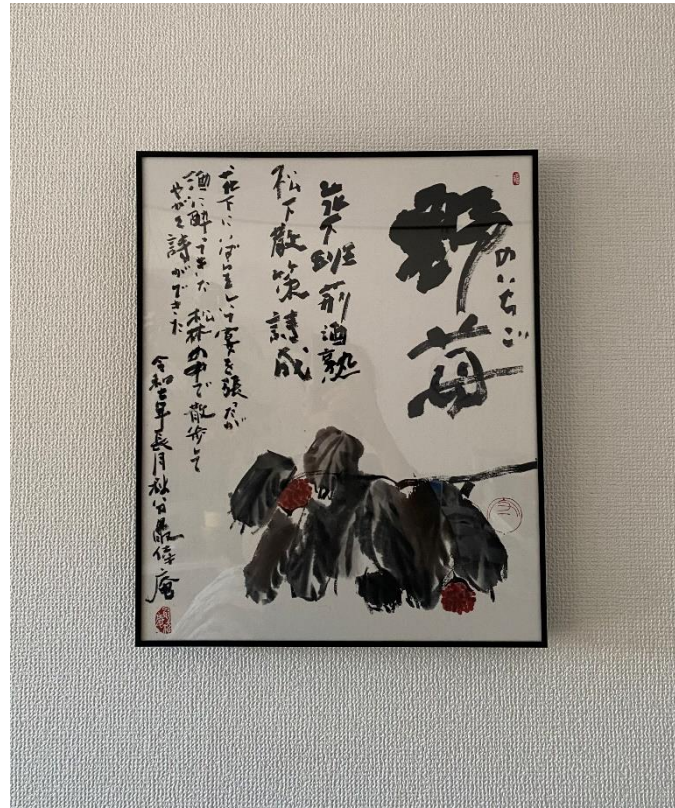 野苺
のいちご
花下班荊酒熟
松下散策詩成
花下にいばらをしいて宴を張ったが
酒に酔ってきた 松林の中で散歩して
やがて詩ができた
令和七年長月秋分 庵